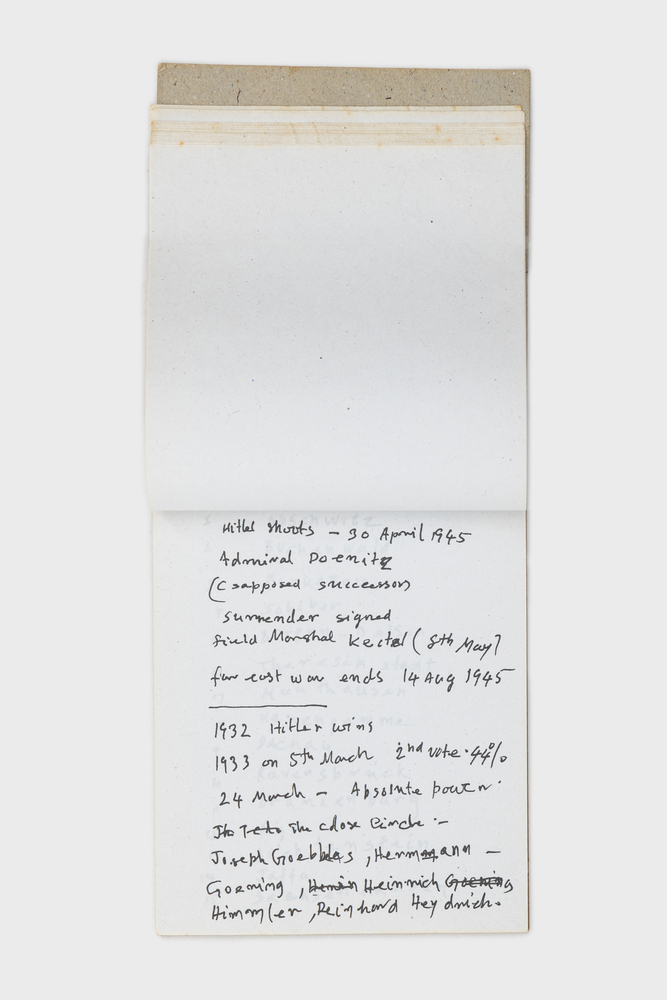 Hitler shoots – 30 April 1945
Admiral Doenitz
(supposed successor)
surrender signed
field Marshal Keitel (8th May)
far east war ends 14 Aug 1945
1932 Hitler wins
1933 on 5th March 2nd vote 44%
24 March – Absolute power
The close Circle :-
Joseph Goebbles, Hermmann –
Goering, Heinrich
Himmler, Reinhard Heydrich.